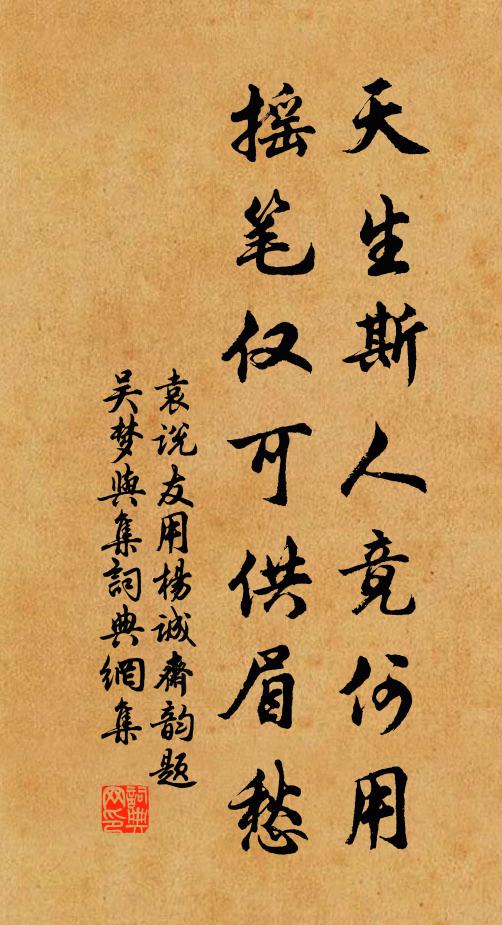 天生斯人竟何用
摇笔仅可供眉愁
袁说友用杨诚斋韵题
吴梦与集詞典網集
詞典网印